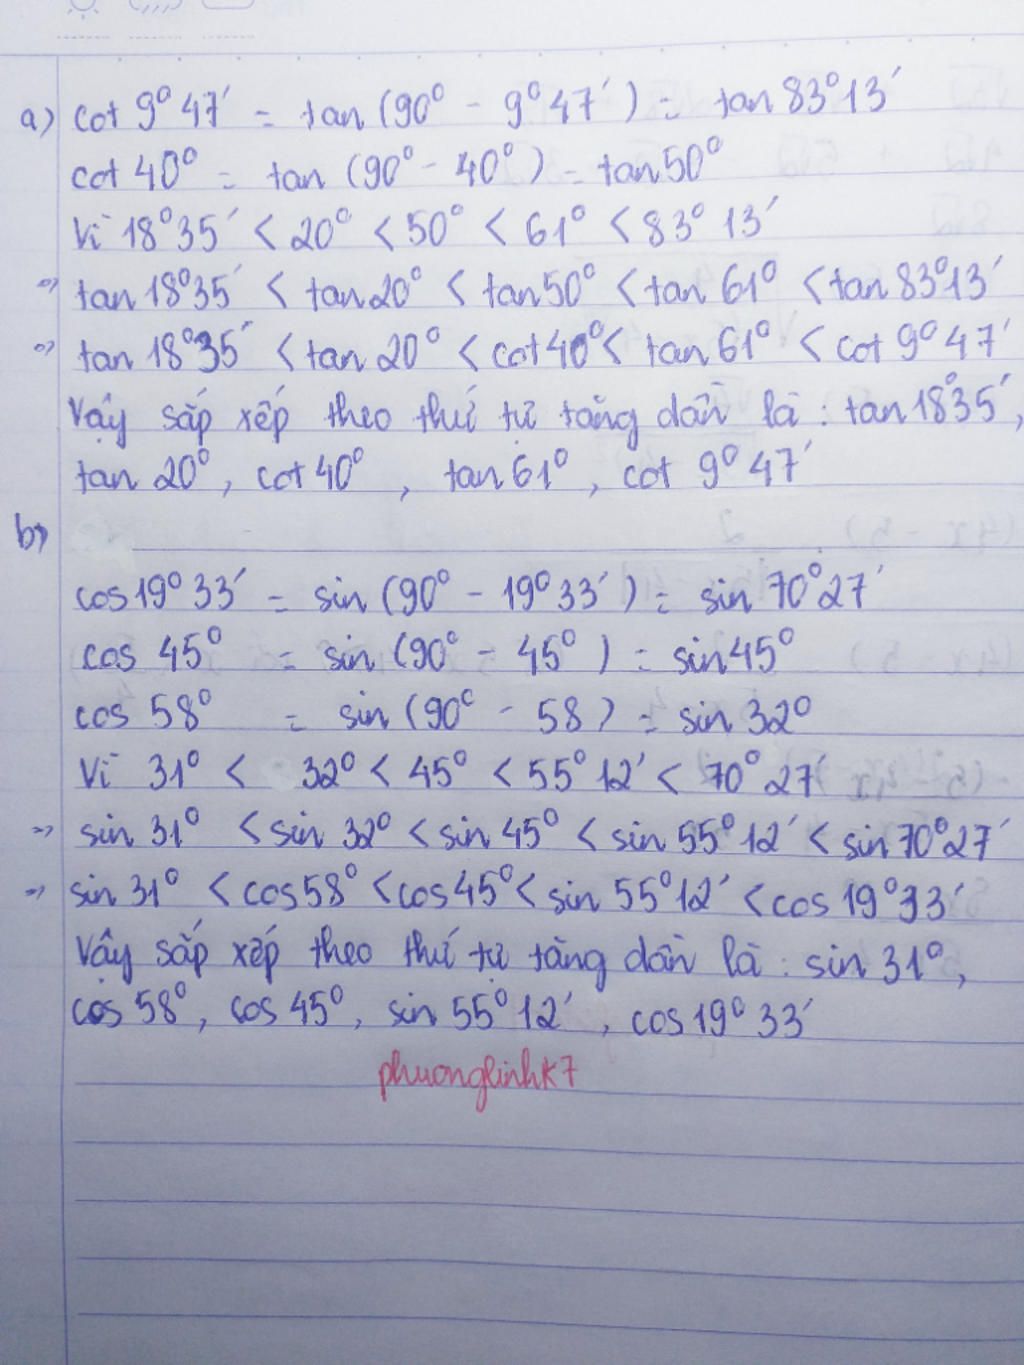 a) cot 9° 47' = tan (90° - 9° 47') = tan 83° 13'
cot 40° = tan (90° - 40°) = tan 50°
Vì 18° 35' < 20° < 50° < 61° < 83° 13'
=> tan 18° 35' < tan 20° < tan 50° < tan 61° < tan 83° 13'
=> tan 18° 35' < tan 20° < cot 40° < tan 61° < cot 9° 47'
Vậy sắp xếp theo thứ tự tăng dần là : tan 18° 35',
tan 20°, cot 40°, tan 61°, cot 9° 47'
b)
cos 19° 33' = sin (90° - 19° 33') = sin 70° 27'
cos 45° = sin (90° - 45°) = sin 45°
cos 58° = sin (90° - 58) = sin 32°
Vì 31° < 32° < 45° < 55° 12' < 70° 27'
=> sin 31° < sin 32° < sin 45° < sin 55° 12' < sin 70° 27'
=> sin 31° < cos 58° < cos 45° < sin 55° 12' < cos 19° 33'
Vậy sắp xếp theo thứ tự tăng dần là : sin 31°,
cos 58°, cos 45°, sin 55° 12', cos 19° 33'
phuonglinhk7